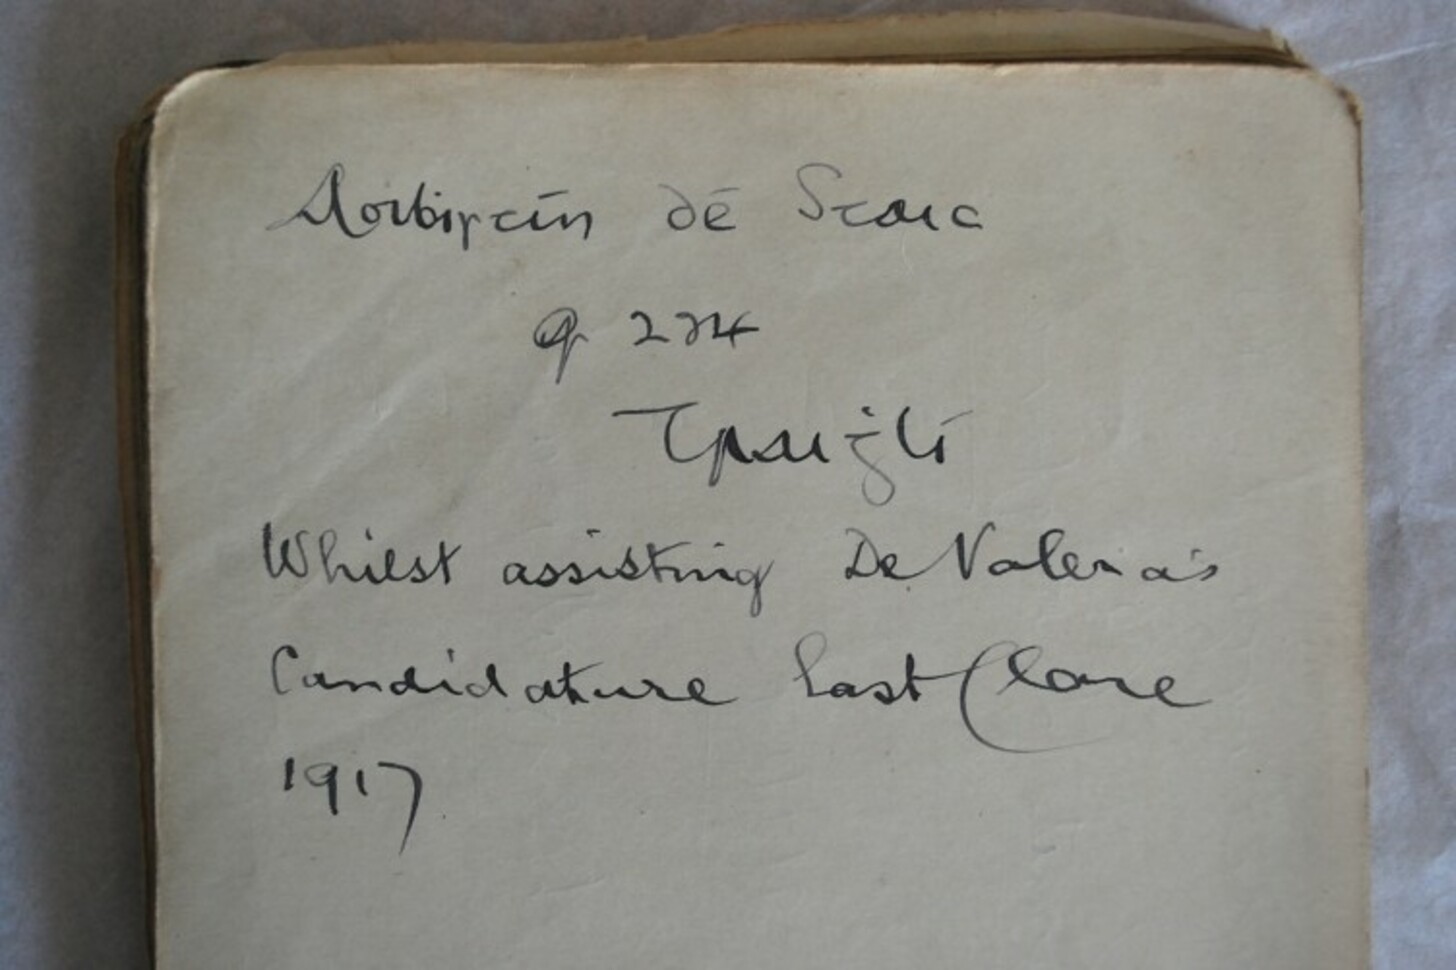 Aoiḃistín de Staic
q 224
Tráiġlí
Whilst assisting De Valera's
Candidature East Clare
1917